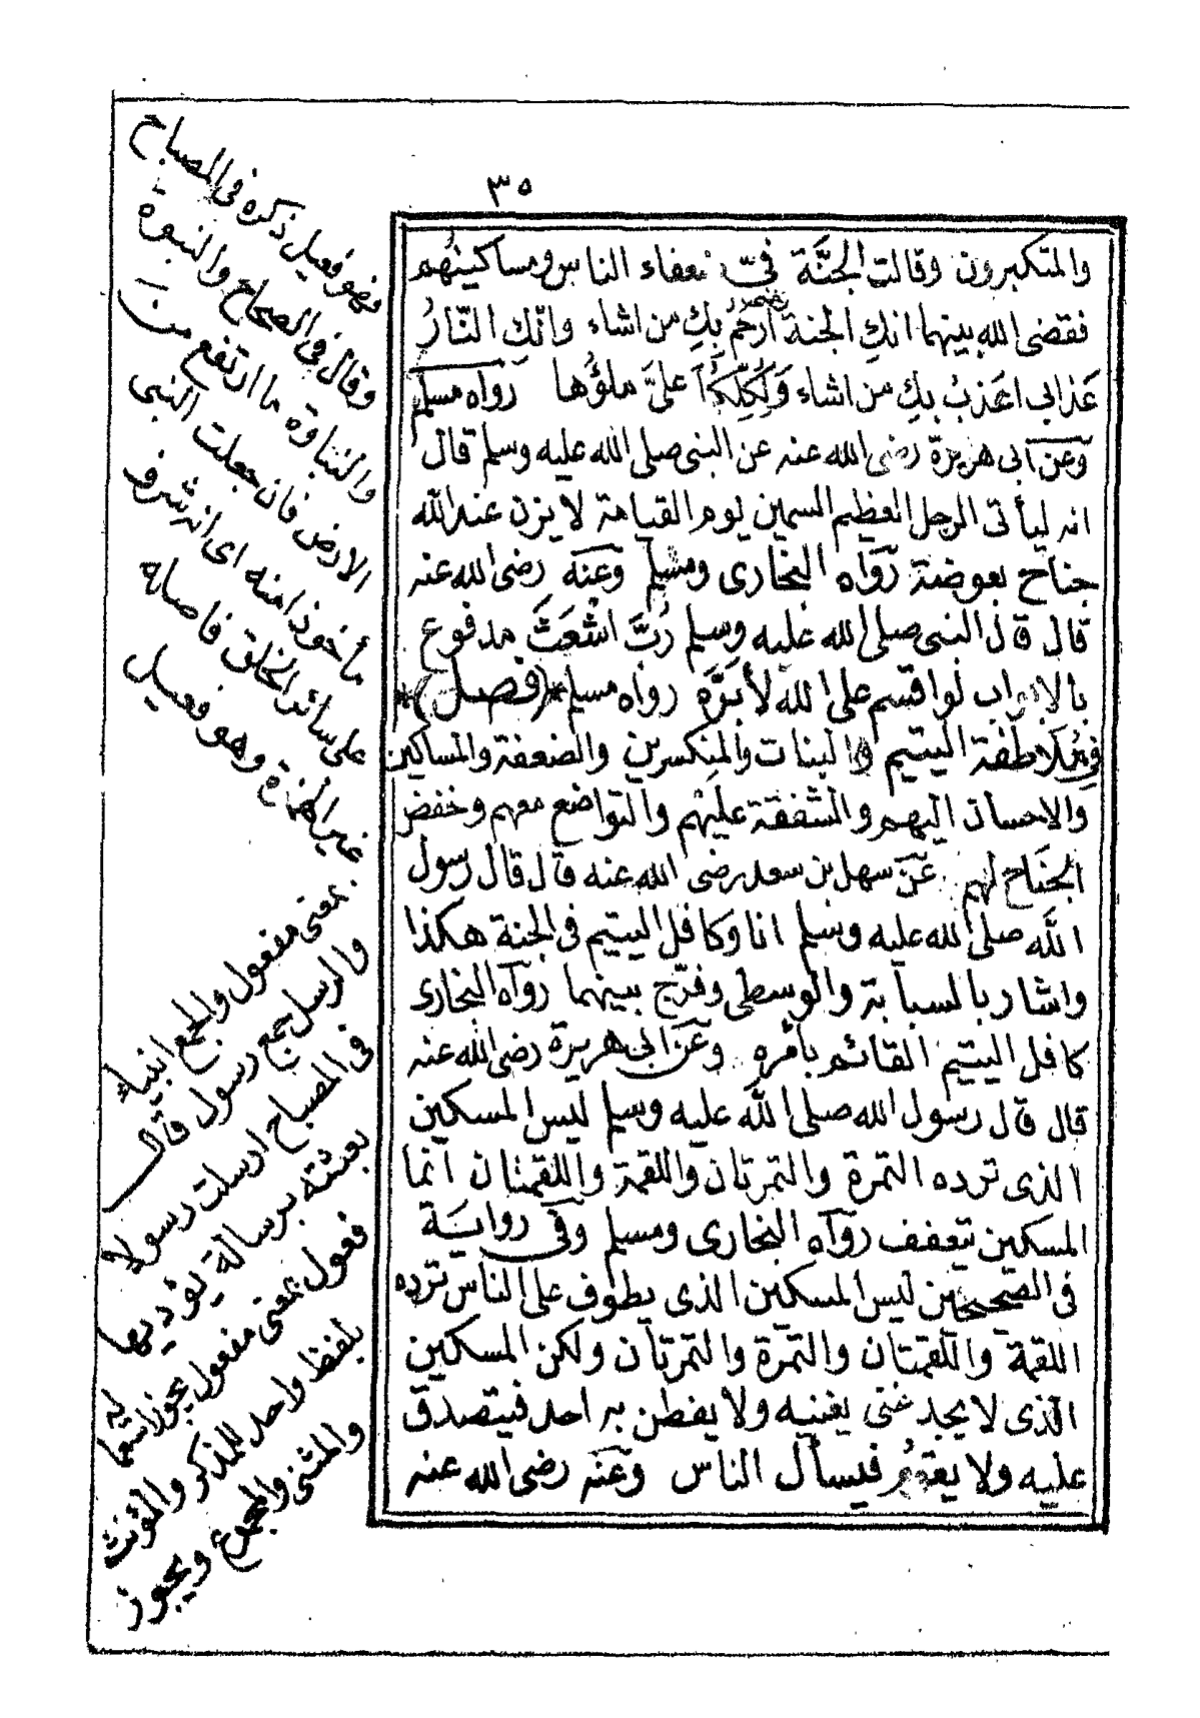 ٣٥
والمتكبرون وقالت الجنَّة فيّ ضعفاء الناس ومساكينهُم
فقضى الله بينهما انكِ الجنة رحمتى ارحَمُ بكِ من اشاء وانّكِ النّارُ
عَذابى اعَذبُ بكِ من اشاء وَلِكِلَيْكُمَا علىَّ ملؤُها رواه مسلم
وعن ابى هريرة رضى الله عنه عن النبى صلى الله عليه وسلم قال
انه ليأتى الرجل العظيم السمين يوم القيامة لا يزن عند الله
جناح بعوضة رواه البخارى ومسلم وعنه رضى الله عنه
قال قال النبى صلى الله عليه وسلم رُبَّ اشْعَثَ مدفوع
بالابواب لو اقسم على الله لأبَرَّه رواه مسلم *(فصل)*
فى مُلاطفة اليتيم والبنات والمنكسرين والضعفة والمساكين
والاحسان اليهم والشفقة عليهم والتواضع معهم وخفض
الجَنَاح لهم عن سهل بن سعد رضى الله عنه قال قال رسول
الله صلى الله عليه وسلم انا وكافل اليتيم فى الجنة هكذا
واشار بالسبابة والوسطى وفرّج بينهما رواه البخارى
كافل اليتيم القائم بأمره وعن ابى هريرة رضى الله عنه
قال قال رسول الله صلى الله عليه وسلم ليس المسكين
الذى ترده التمرة والتمرتان واللقمة واللقمتان انما
المسكين يتعفف رواه البخارى ومسلم وفى رواية
فى الصحيحين ليس المسكين الذى يطوف على الناس ترده
اللقمة واللقمتان والتمرة والتمرتان ولكن المسكين
الذى لا يجد غنى يغنيه ولا يفطن به احد فيتصدق
عليه ولا يقومُ فيسأل الناس وعنه رضى الله عنه
فهو فعيل ذكره فى المصباح
وقال فى الصحاح والنبوة
والنباوة ما ارتفع من
الارض فان جعلت النبى
مأخوذا منه اى انه شرف
على سائر الخلق فاصله
غير الهمزة وهو فعيل
بمعنى مفعول والجمع انبياء
والرسل جمع رسول قال
فى المصباح ارسلت رسولا
بعثته برسالة يؤديها
فعول بمعنى مفعول يجوز استعماله
بلفظ واحد للمذكر والمؤنث
والمثنى والمجموع ويجوز